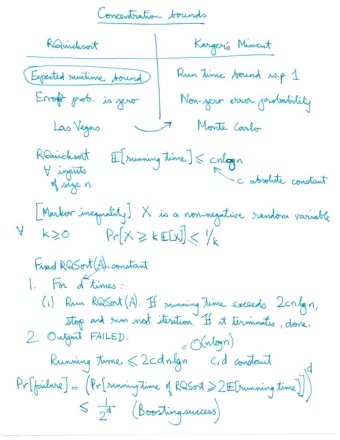 Concentration bounds
RQuicksort Karger's Mincut
Expected runtime bound Run time bound w.p 1
Error prob. is zero Non-zero error probability
Las Vegas → Monte Carlo
RQuicksort E[running time] ≤ cnlogn
∀ inputs c absolute constant
of size n
[Markov inequality] X is a non-negative random variable
∀ k≥0 Pr[X ≥ k E[X]] ≤ 1/k
Fixed RQSort(A). constant
1. For d times:
(i) Run RQSort(A). If running time exceeds 2cnlgn,
stop and run next iteration. If it terminates, done.
2. Output FAILED. = O(nlogn)
Running time ≤ 2cdnlgn c,d constant
Pr[failure] = (Pr[running time of RQSort ≥ 2E[running time]])^d
≤ 1/2^d (Boosting success)